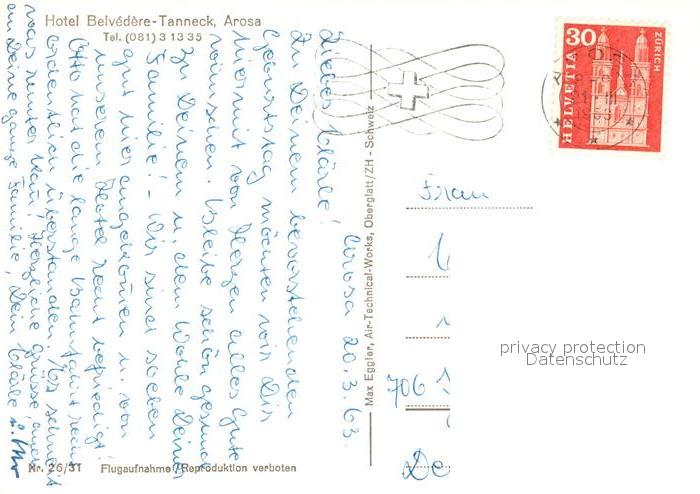 Hotel Belvédère-Tanneck, Arosa
Tel. (081) 3 13 35
Arosa 20.3.63.
Liebes Klärle!
Zu Deinem bevorstehenden
Geburtstag möchten wir Dir
hiermit von Herzen alles Gute
wünschen. Bleibe schön gesund
zu Deinem u. dem Wohle Deiner
Familie! - Wir sind soeben
gut hier angekommen u. von
unserem Hotel recht befriedigt!
Otto hat die lange Bahnfahrt
ordentlich überstanden. Es schneit
Herzliche Grüsse, auch
an Deine ganze Familie, Dein Klärle
Nr. 26/31 Flugaufnahme / Reproduktion verboten
Max Eggler, Air-Technical-Works, Oberglatt/ZH - Schweiz
30
HELVETIA
ZÜRICH
Frau
706
De
privacy protection
Datenschutz